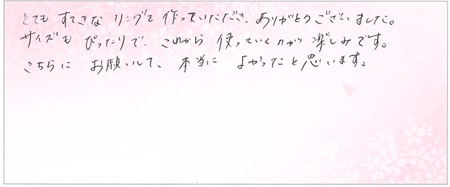 とても すてきな リングを 作っていただき、ありがとうございました。
サイズも ぴったりで、これから 使っていくのが 楽しみです。
こちらに お願いして、本当に よかったと思います。